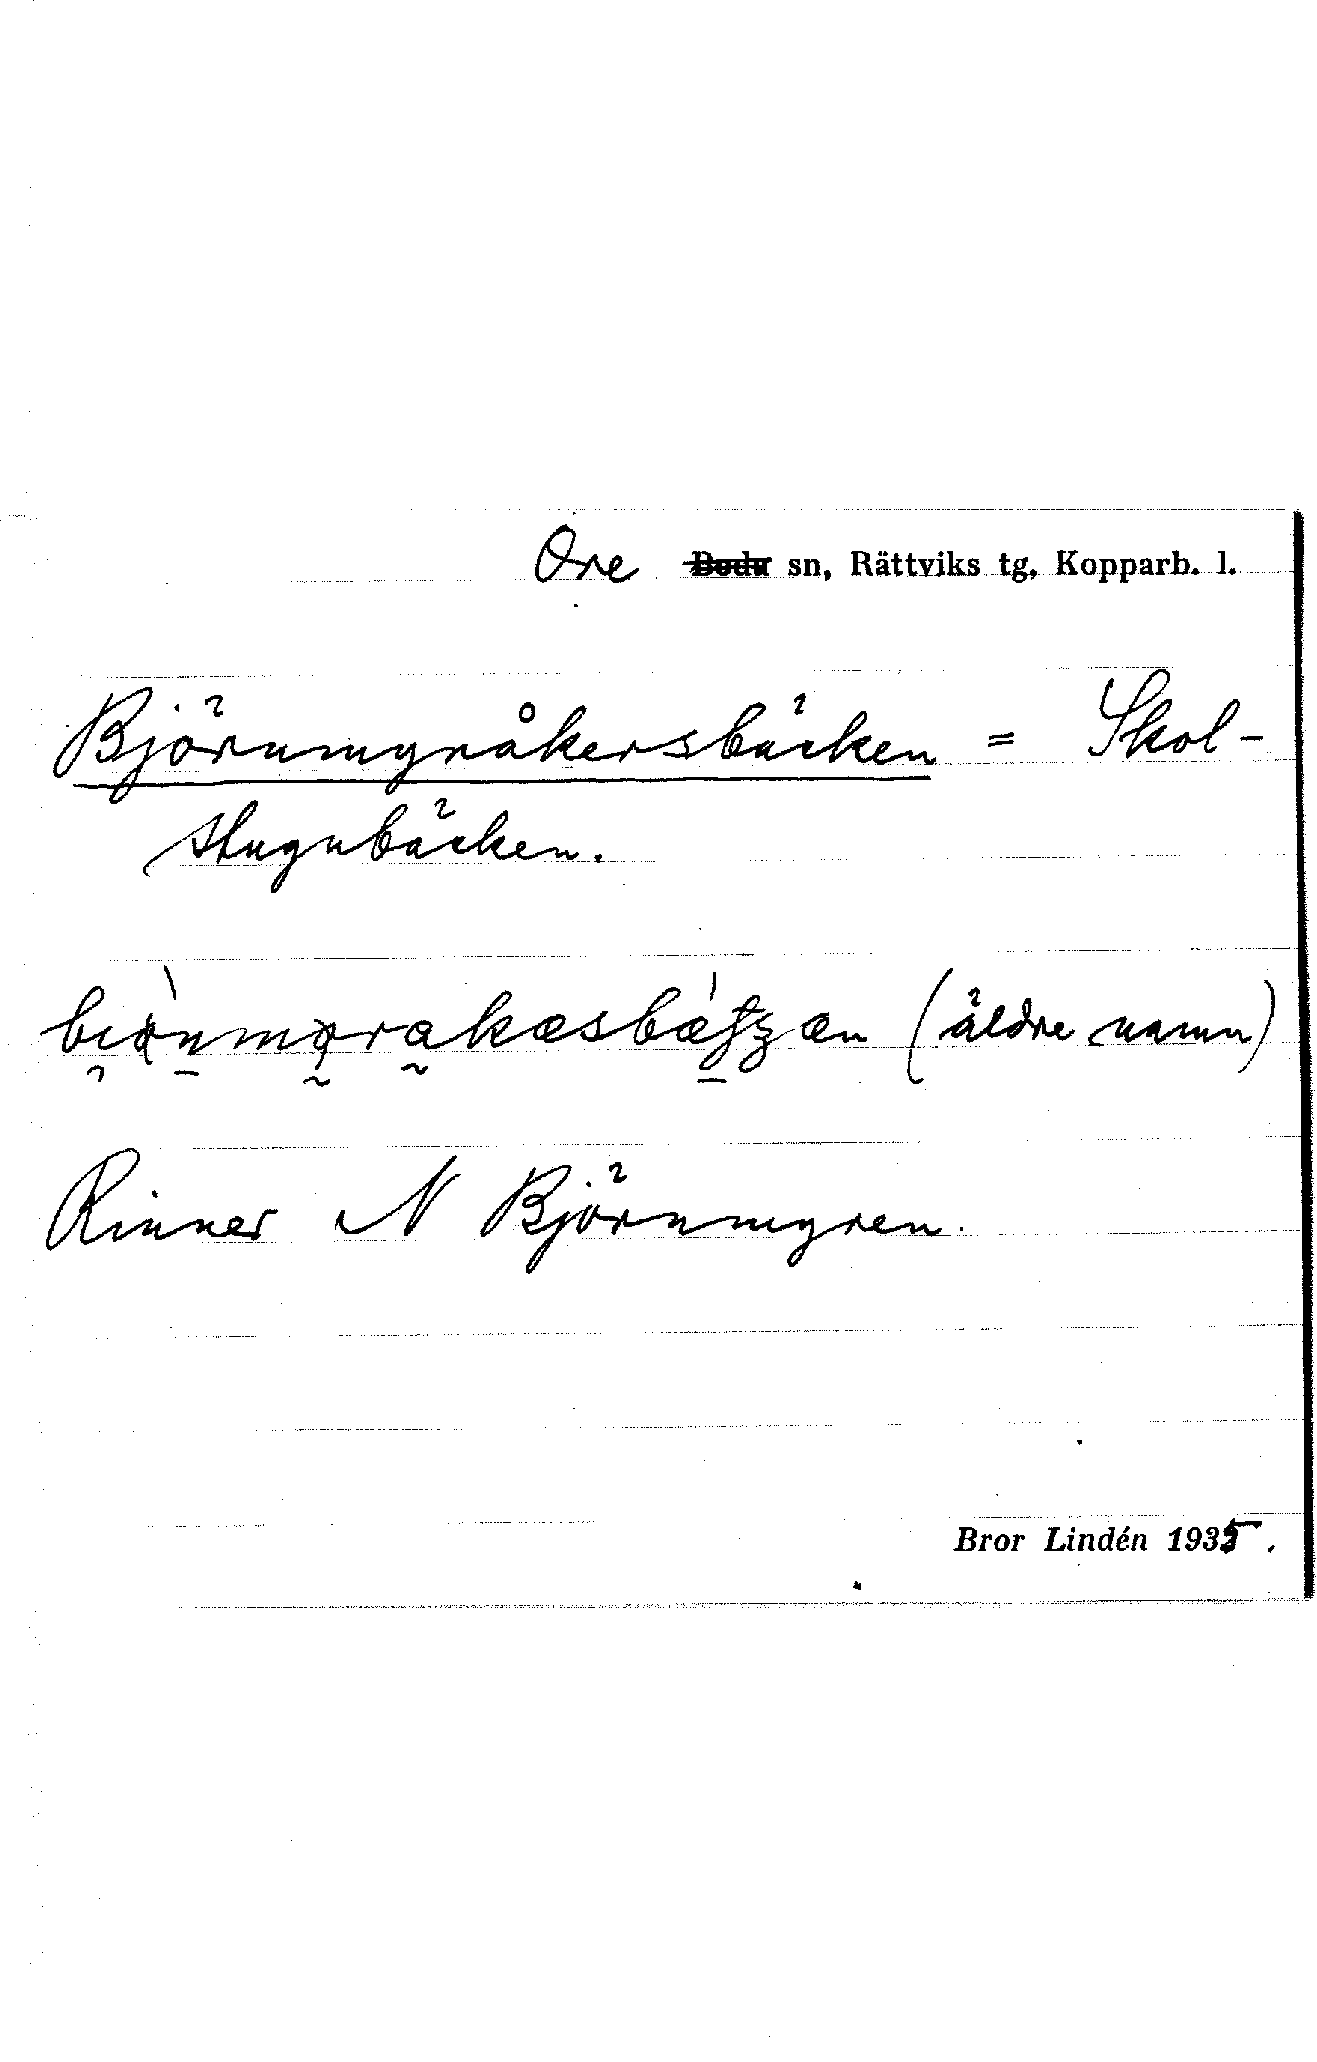 Ore Boda sn, Rättviks tg, Kopparb. l.
Björnmyråkersbäcken = Skol-
stugubäcken.
(äldre namn)
Rinner N Björnmyren.
Bror Lindén 1935.